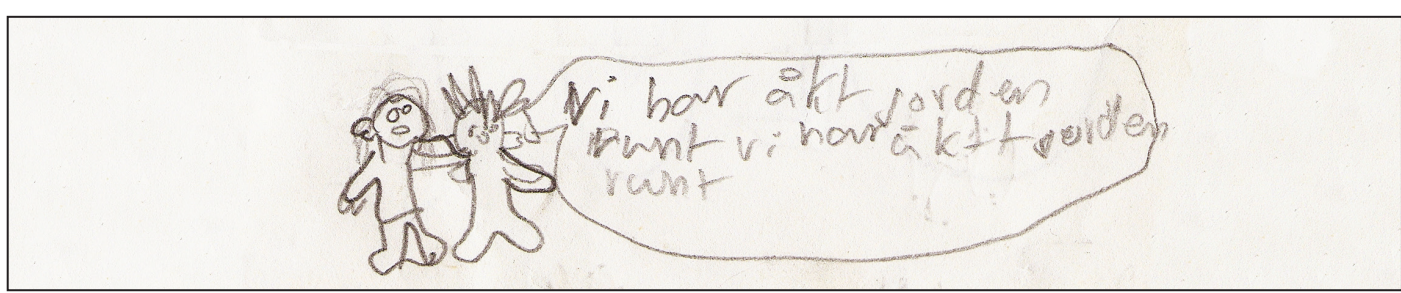 Vi har åkt jorden
runt vi har åktt jorden
runt